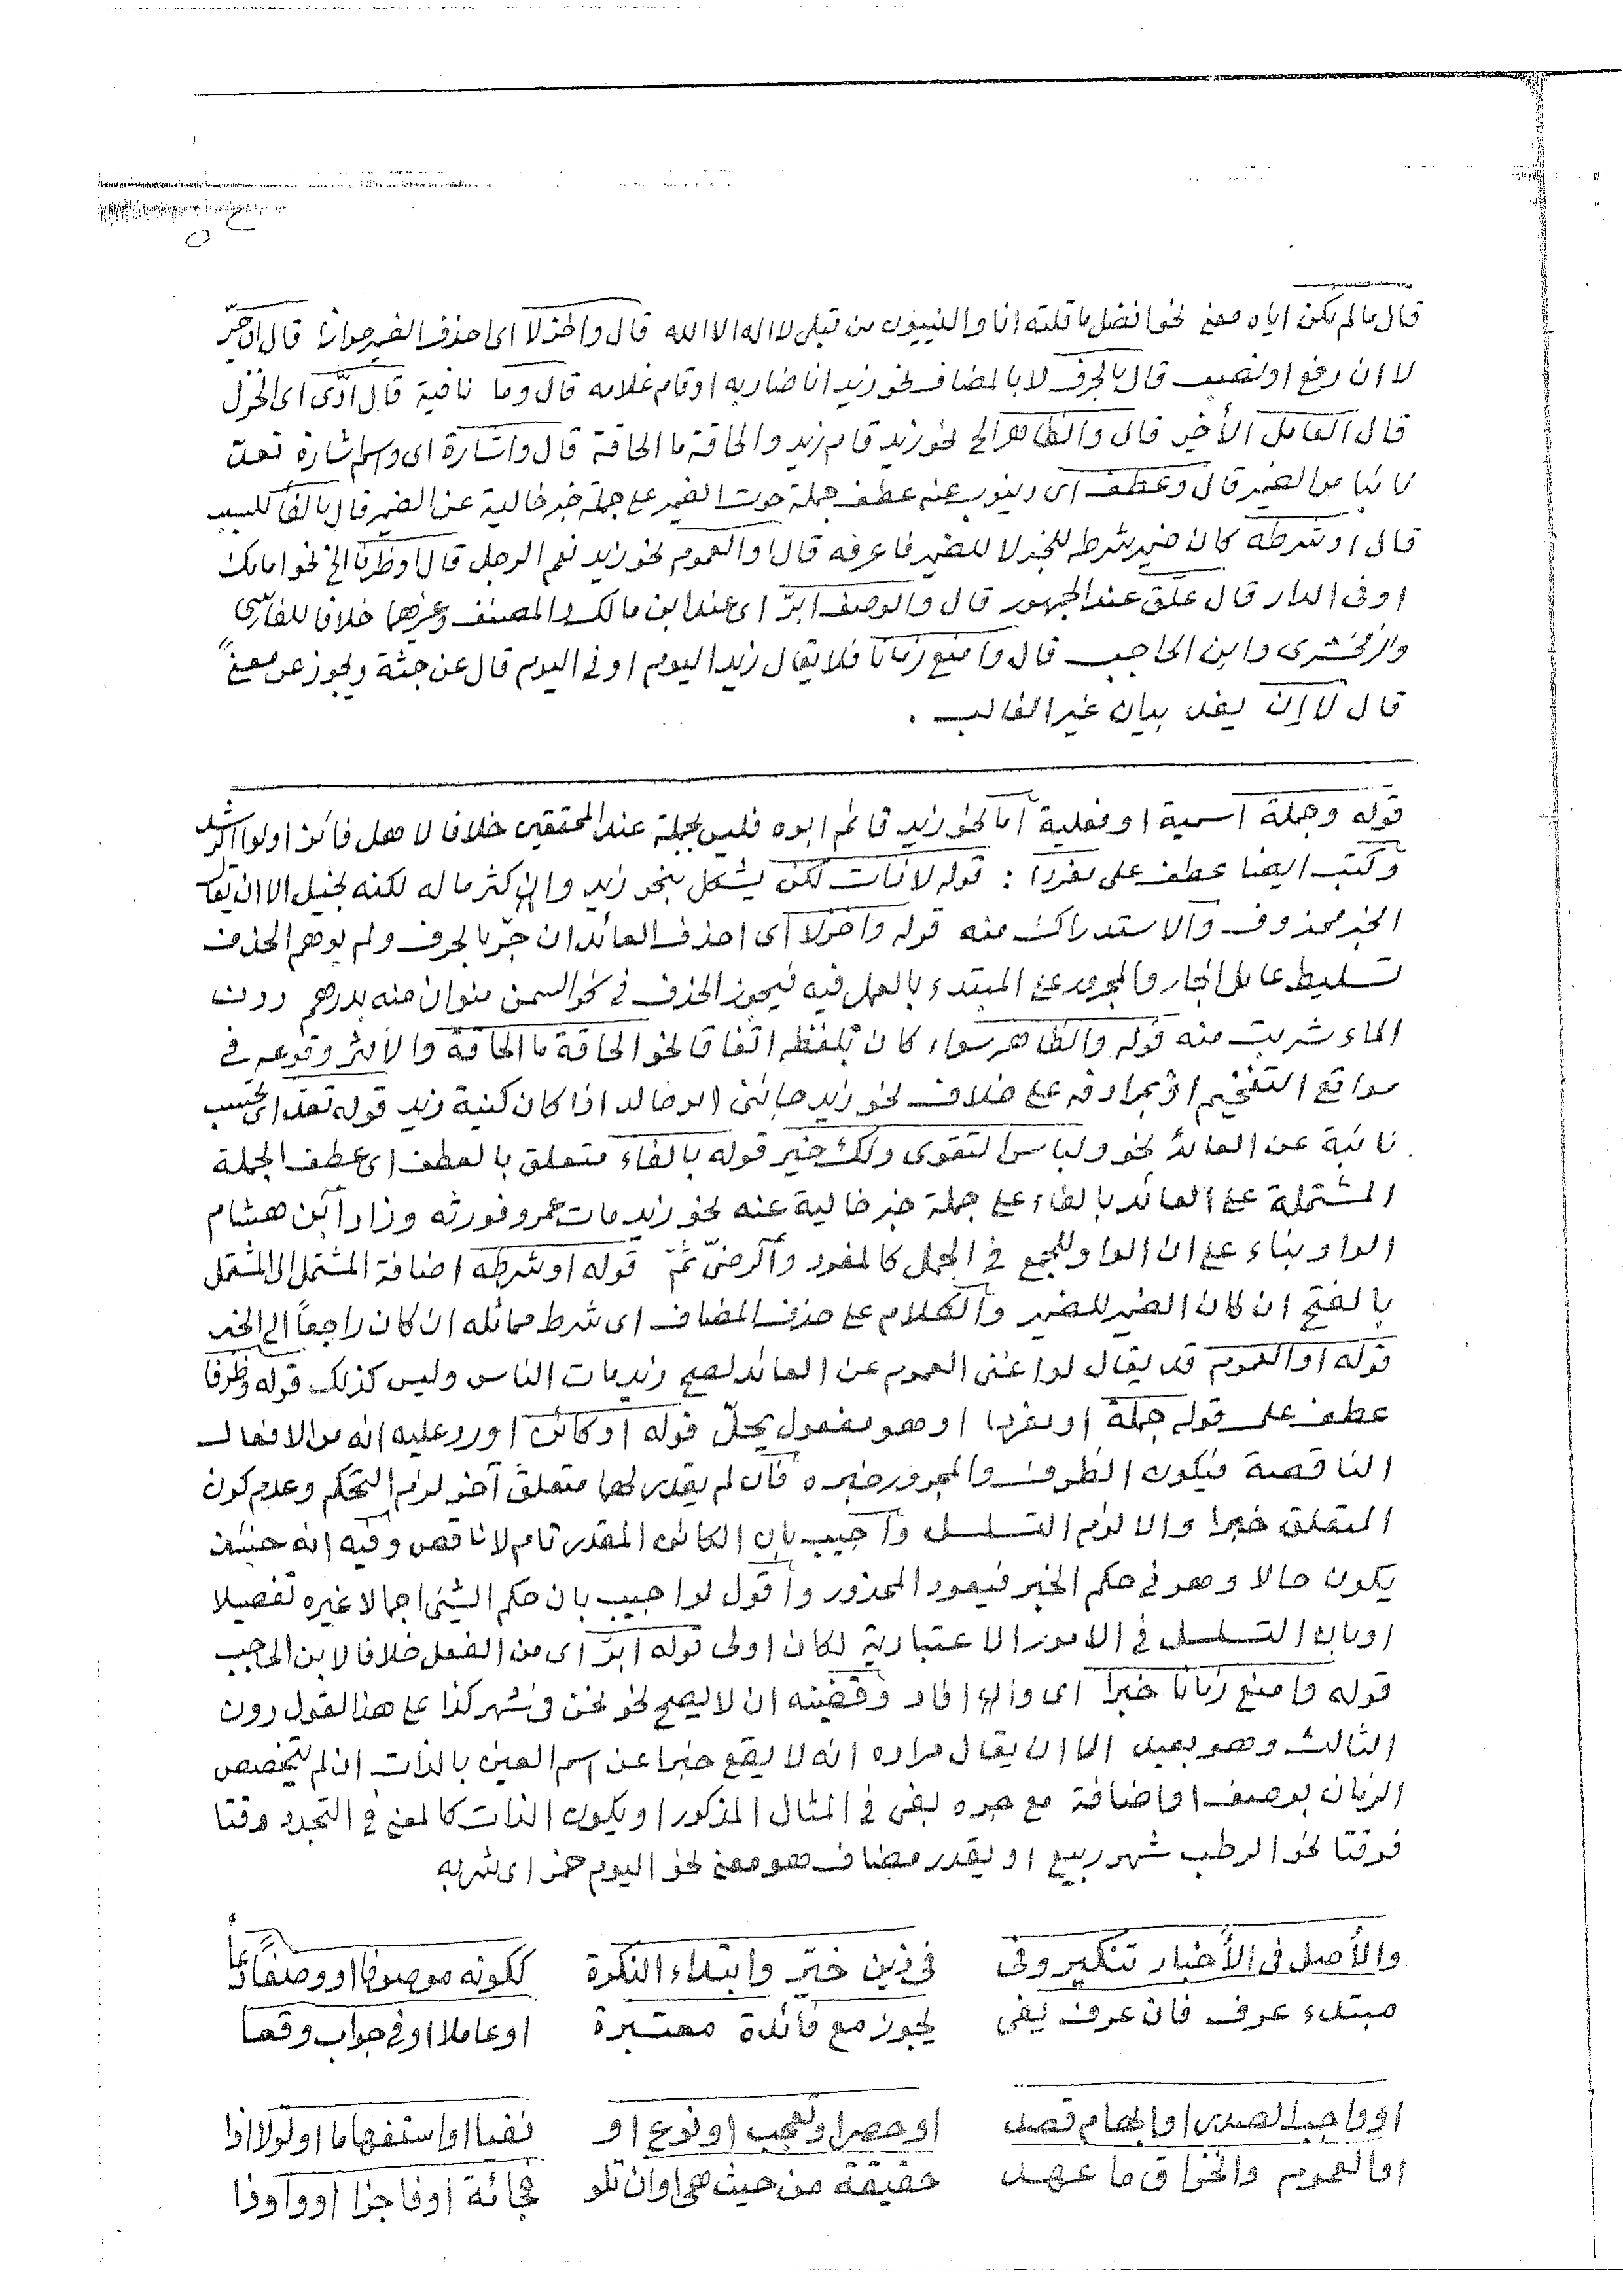 قال ما لم يكن اياه معنى نحو افضل ما قلته انا والنبييون من قبلى لا اله الا الله قال واخزلا اى احذف الضمير جوازا قال ان جرّ
لا ان رفع او نصب قال بالحرف لا بالمضاف نحو زيد انا ضاربه او قام غلامه قال وما نافية قال ادّى اى الخزل
قال العامل الأخير قال والظاهر الخ نحو زيد قام زيد والحاقة ما الحاقة قال واشارة اى واسم اشارة تعدّ
نائبا من الضمير قال وعطف اى وينوب عنه عطف جملة حوت الضمير على جملة خبر خالية عن الضمير قال بالفا للسبب
قال او شرطه كان ضمير شرطه للخبر لا للضمير فاعرفه قال او العموم نحو زيد نعم الرجل قال او ظرفا الخ نحو امامك
او فى الدار قال علّق عند الجمهور قال والوصف ابرّ اى عند ابن مالك والمصنف وغيرهما خلافا للفارسى
والزمخشرى وابن الحاجب قال وامنع زمانا فلا يقال زيد اليوم او فى اليوم قال عن جثة ويجوز عن معنىً
قال لا ان يفد بيان غير الغالب .
قوله وجملة اسمية او فعلية اما نحو زيد قائم ابوه فليس بجملة عند المحققين خلافا لا هل فائز اولوا الرشد
وكتب ايضا عطف على مفردا : قوله لا نات لكن يشكل بنحو زيد وان كثر ماله لكنه بخيل الا ان يقال
الخبر محذوف والاستدراك منه قوله واخزلا اى احذف العائد ان جرّ بالحرف ولم يوهم الحذف
تسليط عامل الجار والمجرور على المبتدء بالعمل فيه فيجوز الحذف فى نحو السمن منوان منه بدرهم دون
الماء شربت منه قوله والظاهر سواء كان بلفظه اتفاقا نحو الحاقة ما الحاقة والأكثر وقوعه فى
مواقع التفخيم او بمرادفه على خلاف نحو زيد جائنى ابو خالد اذا كان كنية زيد قوله تعد اى تحسب
نائبة عن العائد نحو ولباس التقوى ذلك خير قوله بالفاء متعلق بالعطف اى عطف الجملة
المشتملة على العائد بالفاء على جملة خبر خالية عنه نحو زيد مات عمرو فورثه وزاد ابن هشام
الواو بناء على ان الواو للجمع فى الجمل كالمفرد والرضىّ ثمّ قوله او شرطه اضافة المشتمل الى المشتمل
بالفتح ان كان الضمير للضمير والكلام على حذف المضاف اى شرط مماثله ان كان راجعاً الى الخبر
قوله او العموم قد يقال لو اغنى العموم عن العائد لصح زيد مات الناس وليس كذلك قوله وظرفا
عطف على قوله جملة او مفردا او هو مفعول يحلّ قوله او كائن اورد عليه انه من الافعال
الناقصة فيكون الظرف والمجرور خبره فان لم يقدر لهما متعلق آخر لزم التحكم وعدم كون
المتعلق خبرا والا لزم التسلسل واجيب بان الكائن المقدر تام لا ناقص وفيه انه حينئذ
يكون حالا وهو فى حكم الخبر فيعود المحذور واقول لو اجيب بان حكم الشيئ اجمالا غيره تفصيلا
او بان التسلسل فى الامور الاعتبارية لكان اولى قوله ابرّ اى من الفعل خلافا لابن الحاجب
قوله وامنع زمانا خبرا اى وان افاد وقضيته ان لا يصح نحو نحن فى شهر كذا على هذا القول دون
الثالث وهو بعيد الا ان يقال مراده انه لا يقع خبرا عن اسم العين بالذات ان لم يتخصص
الزمان بوصف او اضافة مع جره بفى فى المثال المذكور او يكون الذات كالمعنى فى التجدد وقتا
فوقتا نحو الرطب شهر ربيع او يقدر مضاف هو معنى نحو اليوم خمر اى شربه
والأصل فى الأخبار تنكير وفى فى ذين خيّر وابتداء النكرة لكونه موصوفا او وصفا دعا
مبتدء عرف فان عرف يفى يجوز مع فائدة معتبرة او عاملا او فى جواب وقعا
او واجبا لصدر او ابهام قصد او حصرا وتعجب او نوع او نفيا او استفهاما او لولا اذا
او العموم والخراق ما عهد حقيقة من حيث هى او ان تلو فجائة او فا جزا او واو ذا